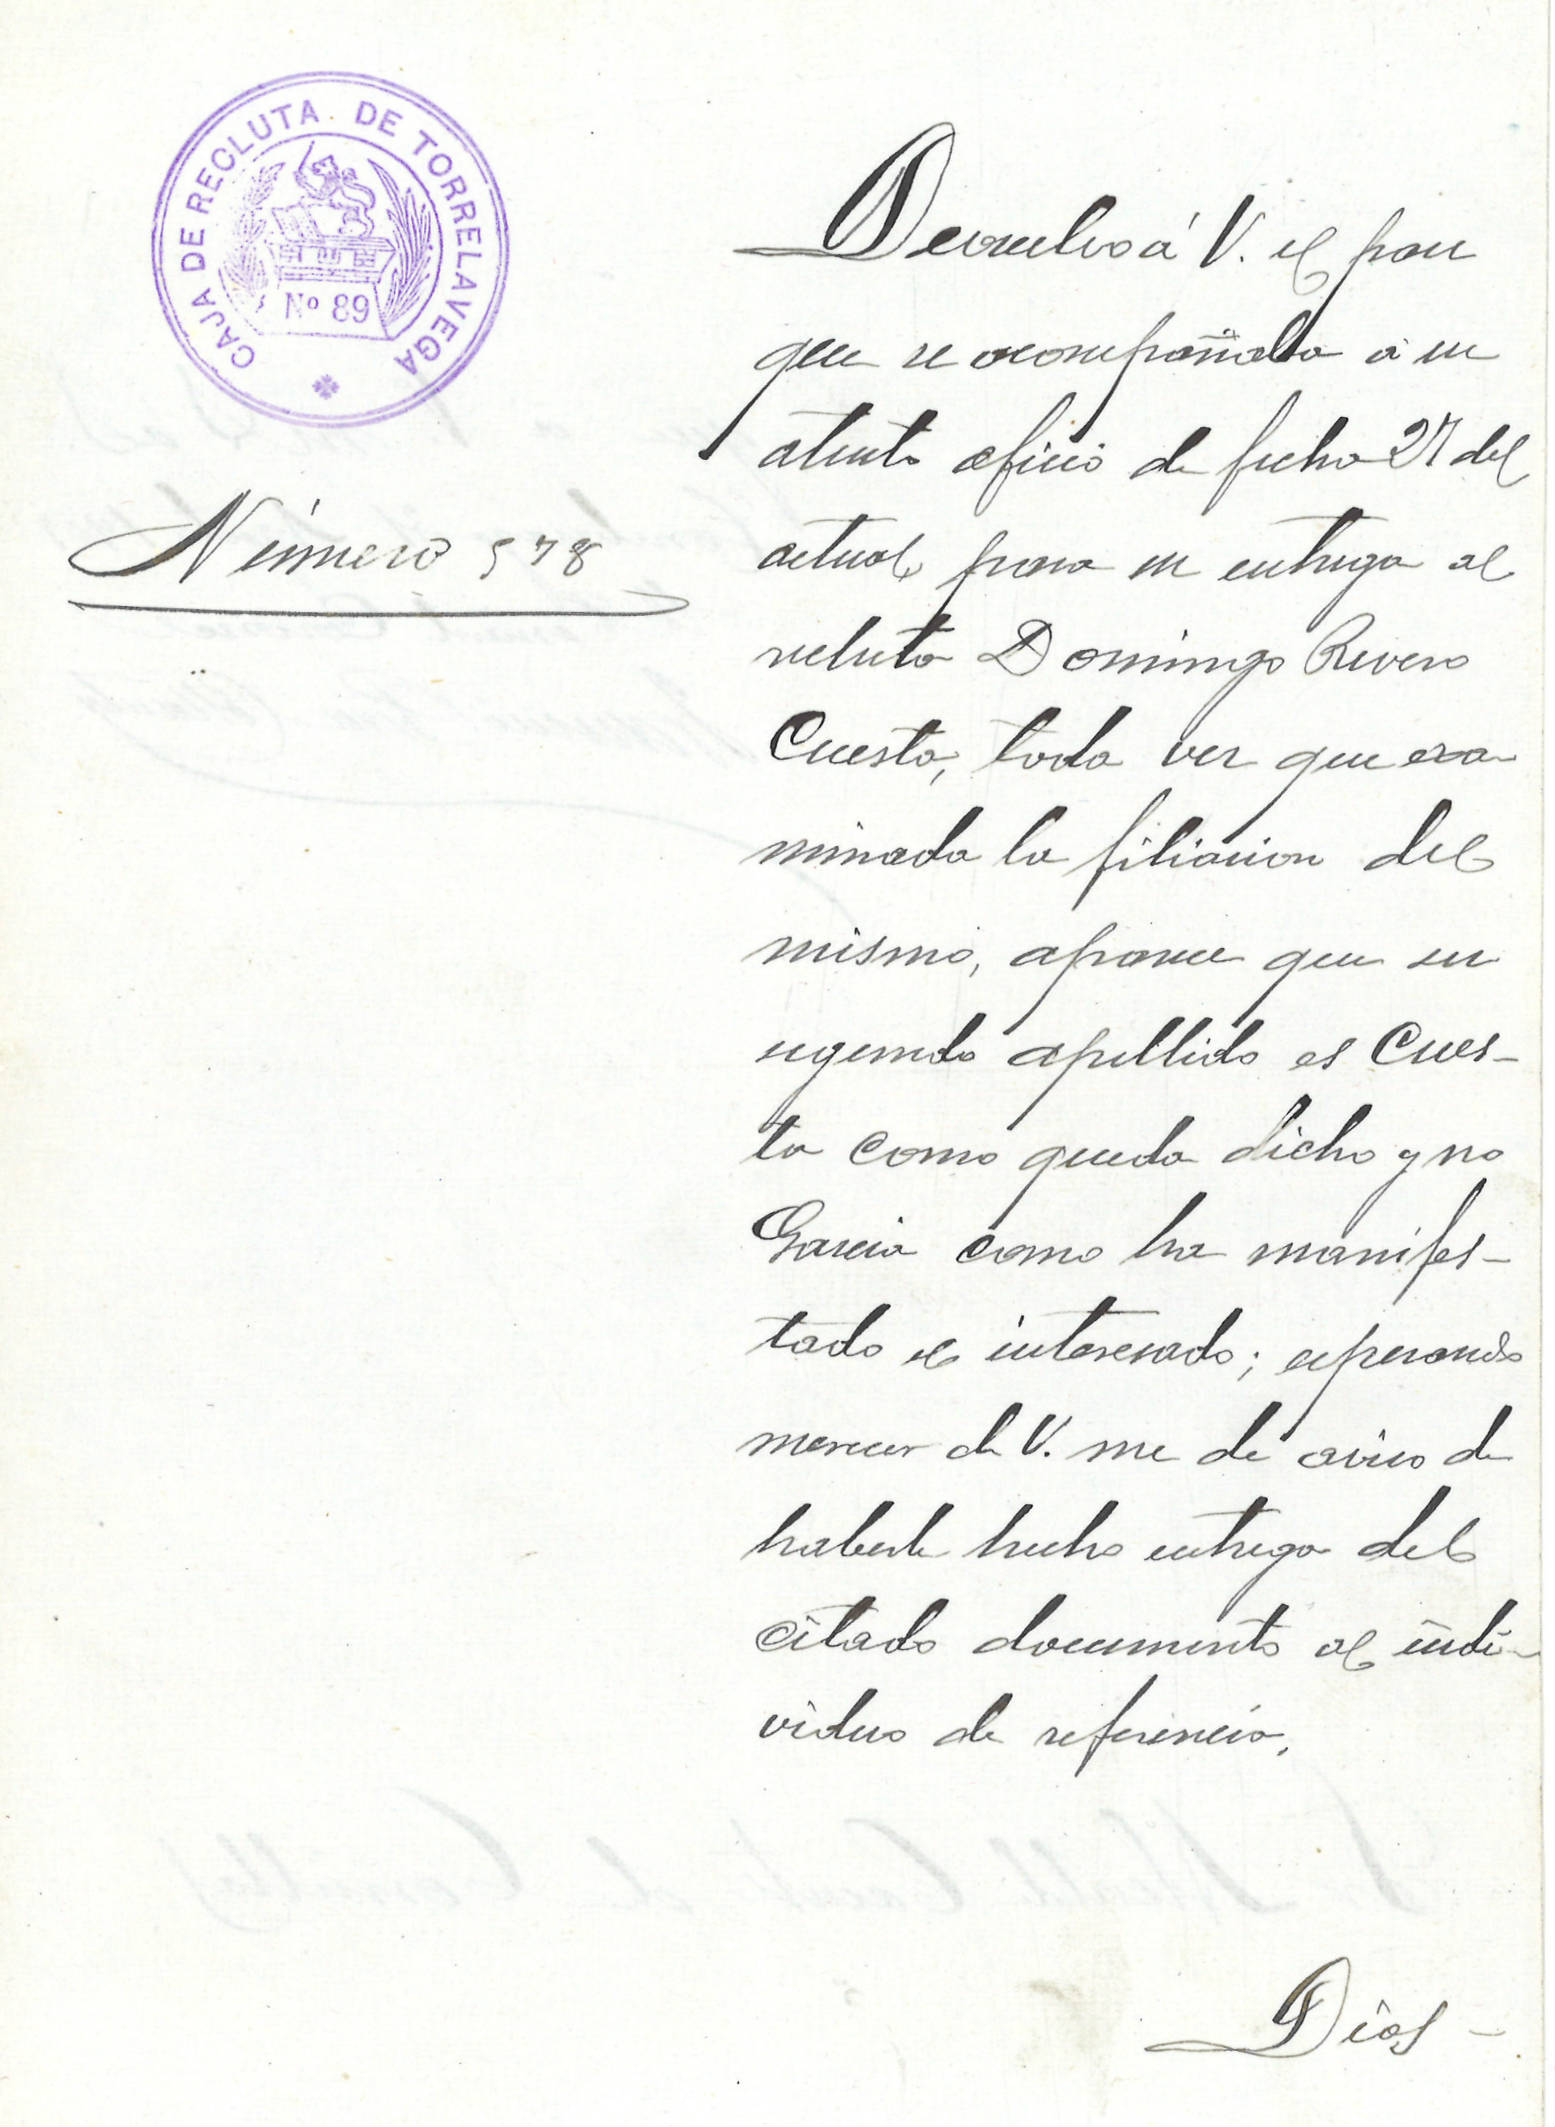 CAJA DE RECLUTA DE TORRELAVEGA
Nº 89
Número 578
Devuelvo á V. el pase
que se acompañaba á su
atento oficio de fecha 27 del
actual, para su entrega al
recluta Domingo Rivero
Cuesta, toda vez que exa-
minada la filiacion del
mismo, aparece que su
segundo apellido es Cues-
ta como queda dicho y no
Garcia como ha manifes-
tado el interesado; esperando
merecer de V. me de aviso de
haberle hecho entrega del
citado documento al indi-
viduo de referencia.
Dios -